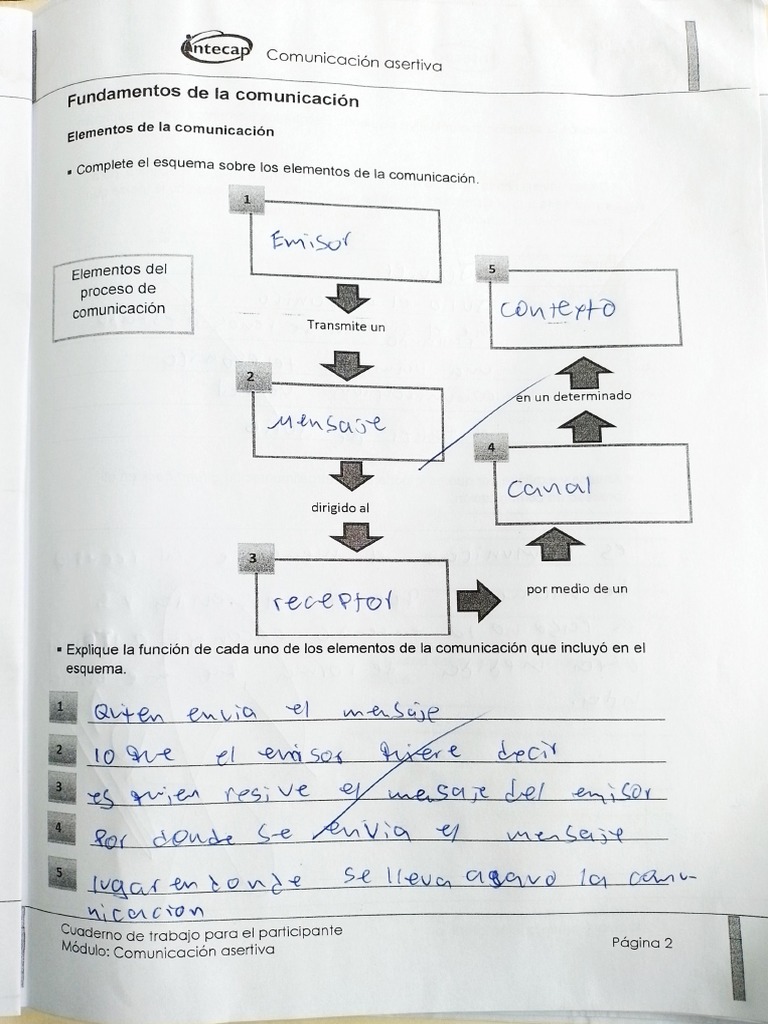 intecap Comunicación asertiva
Fundamentos de la comunicación
Elementos de la comunicación
▪ Complete el esquema sobre los elementos de la comunicación.
1
Emisor
Elementos del
proceso de
comunicación
5
contexto
Transmite un
2
Mensaje
en un determinado
4
canal
dirigido al
3
receptor
por medio de un
▪ Explique la función de cada uno de los elementos de la comunicación que incluyó en el
esquema.
1 Quien envia el mensaje
2 lo que el emisor quiere decir
3 es quien resive el mensaje del emisor
4 Por donde se envia el mensaje
5 lugar en donde se lleva acavo la comu-
nicacion
Cuaderno de trabajo para el participante
Módulo: Comunicación asertiva
Página 2